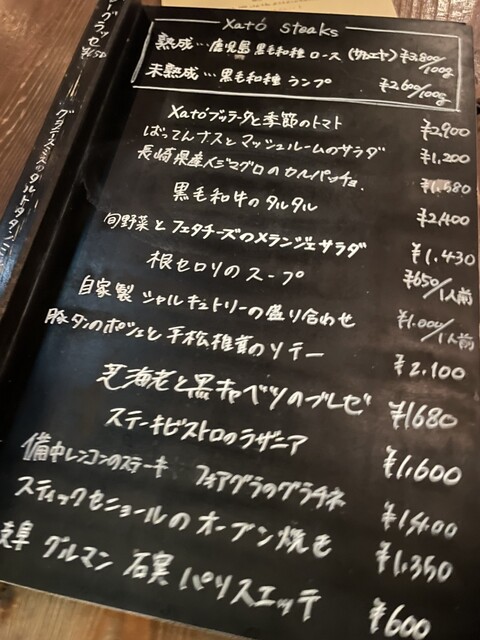 Xató steaks
熟成…鹿児島黒毛和種ロース (サムエヤ) ¥3,800/100g
未熟成…黒毛和種ランプ ¥2600/100g
Xatóブッラータと季節のトマト ¥2900
ばってんナスとマッシュルームのサラダ ¥1,200
長崎県産メジマグロのカルパッチョ ¥1,580
黒毛和牛のタルタル ¥2,400
旬野菜とフェタチーズのメランジェサラダ ¥1,430
根セロリのスープ ¥650/1人前
自家製シャルキュトリーの盛り合わせ ¥1,000/1人前
豚タンのポシェと平松椎茸のソテー ¥2,100
芝海老と黒キャベツのブレゼ ¥1680
ステーキビストロのラザニア ¥1,600
備中レンコンのステーキ フォアグラのグラチネ ¥1,400
スティックセニョールのオーブン焼き ¥1,350
岐阜 グルマン 石実 パリスエッテ ¥600
ーグラッセ ¥650
グラニースミスのタルトタタン